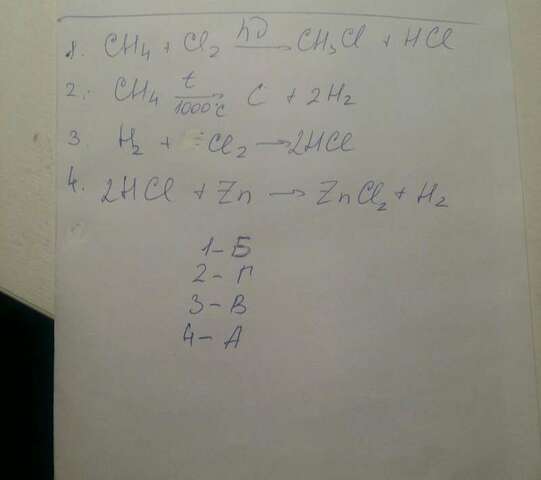 1. CH4 + Cl2 hν → CH3Cl + HCl
2. CH4 t 1000°C → C + 2H2
3. H2 + Cl2 → 2HCl
4. 2HCl + Zn → ZnCl2 + H2
1 – Б
2 – Г
3 – В
4 – А